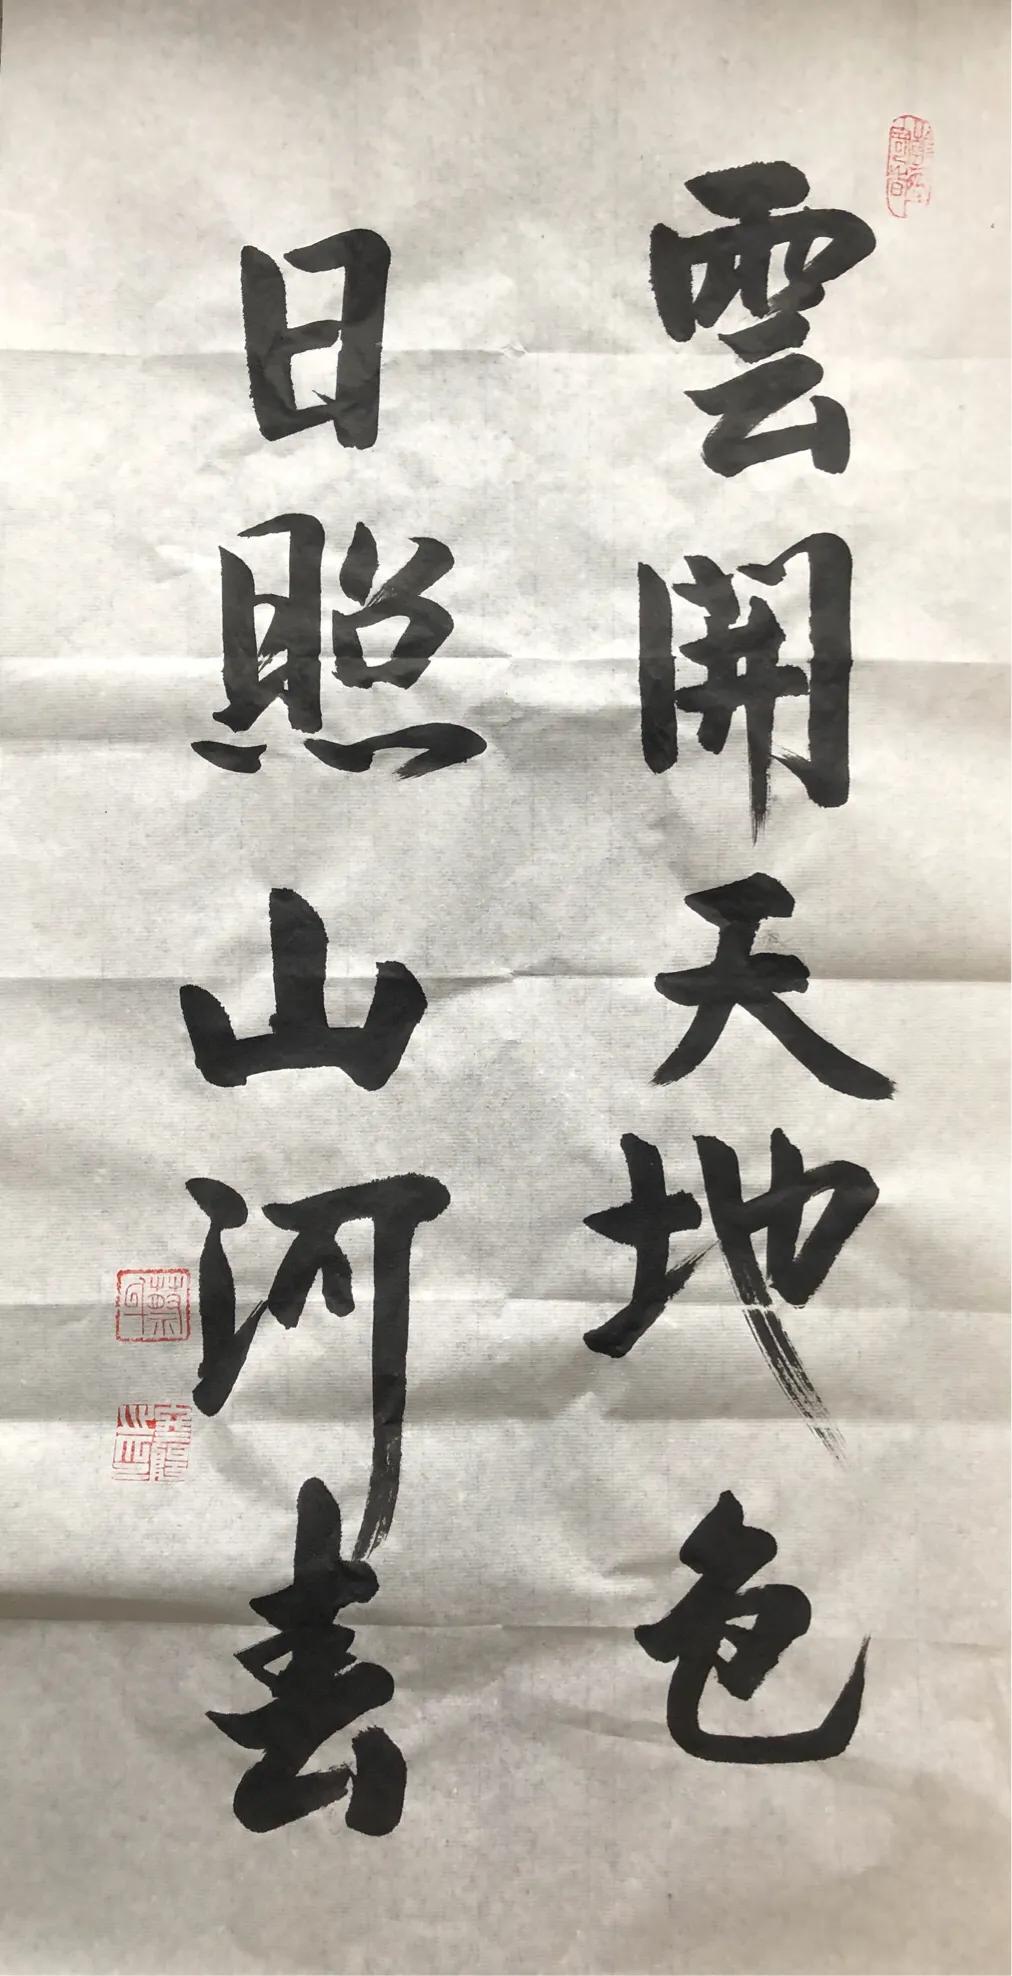 雲開天地色
日照山河春